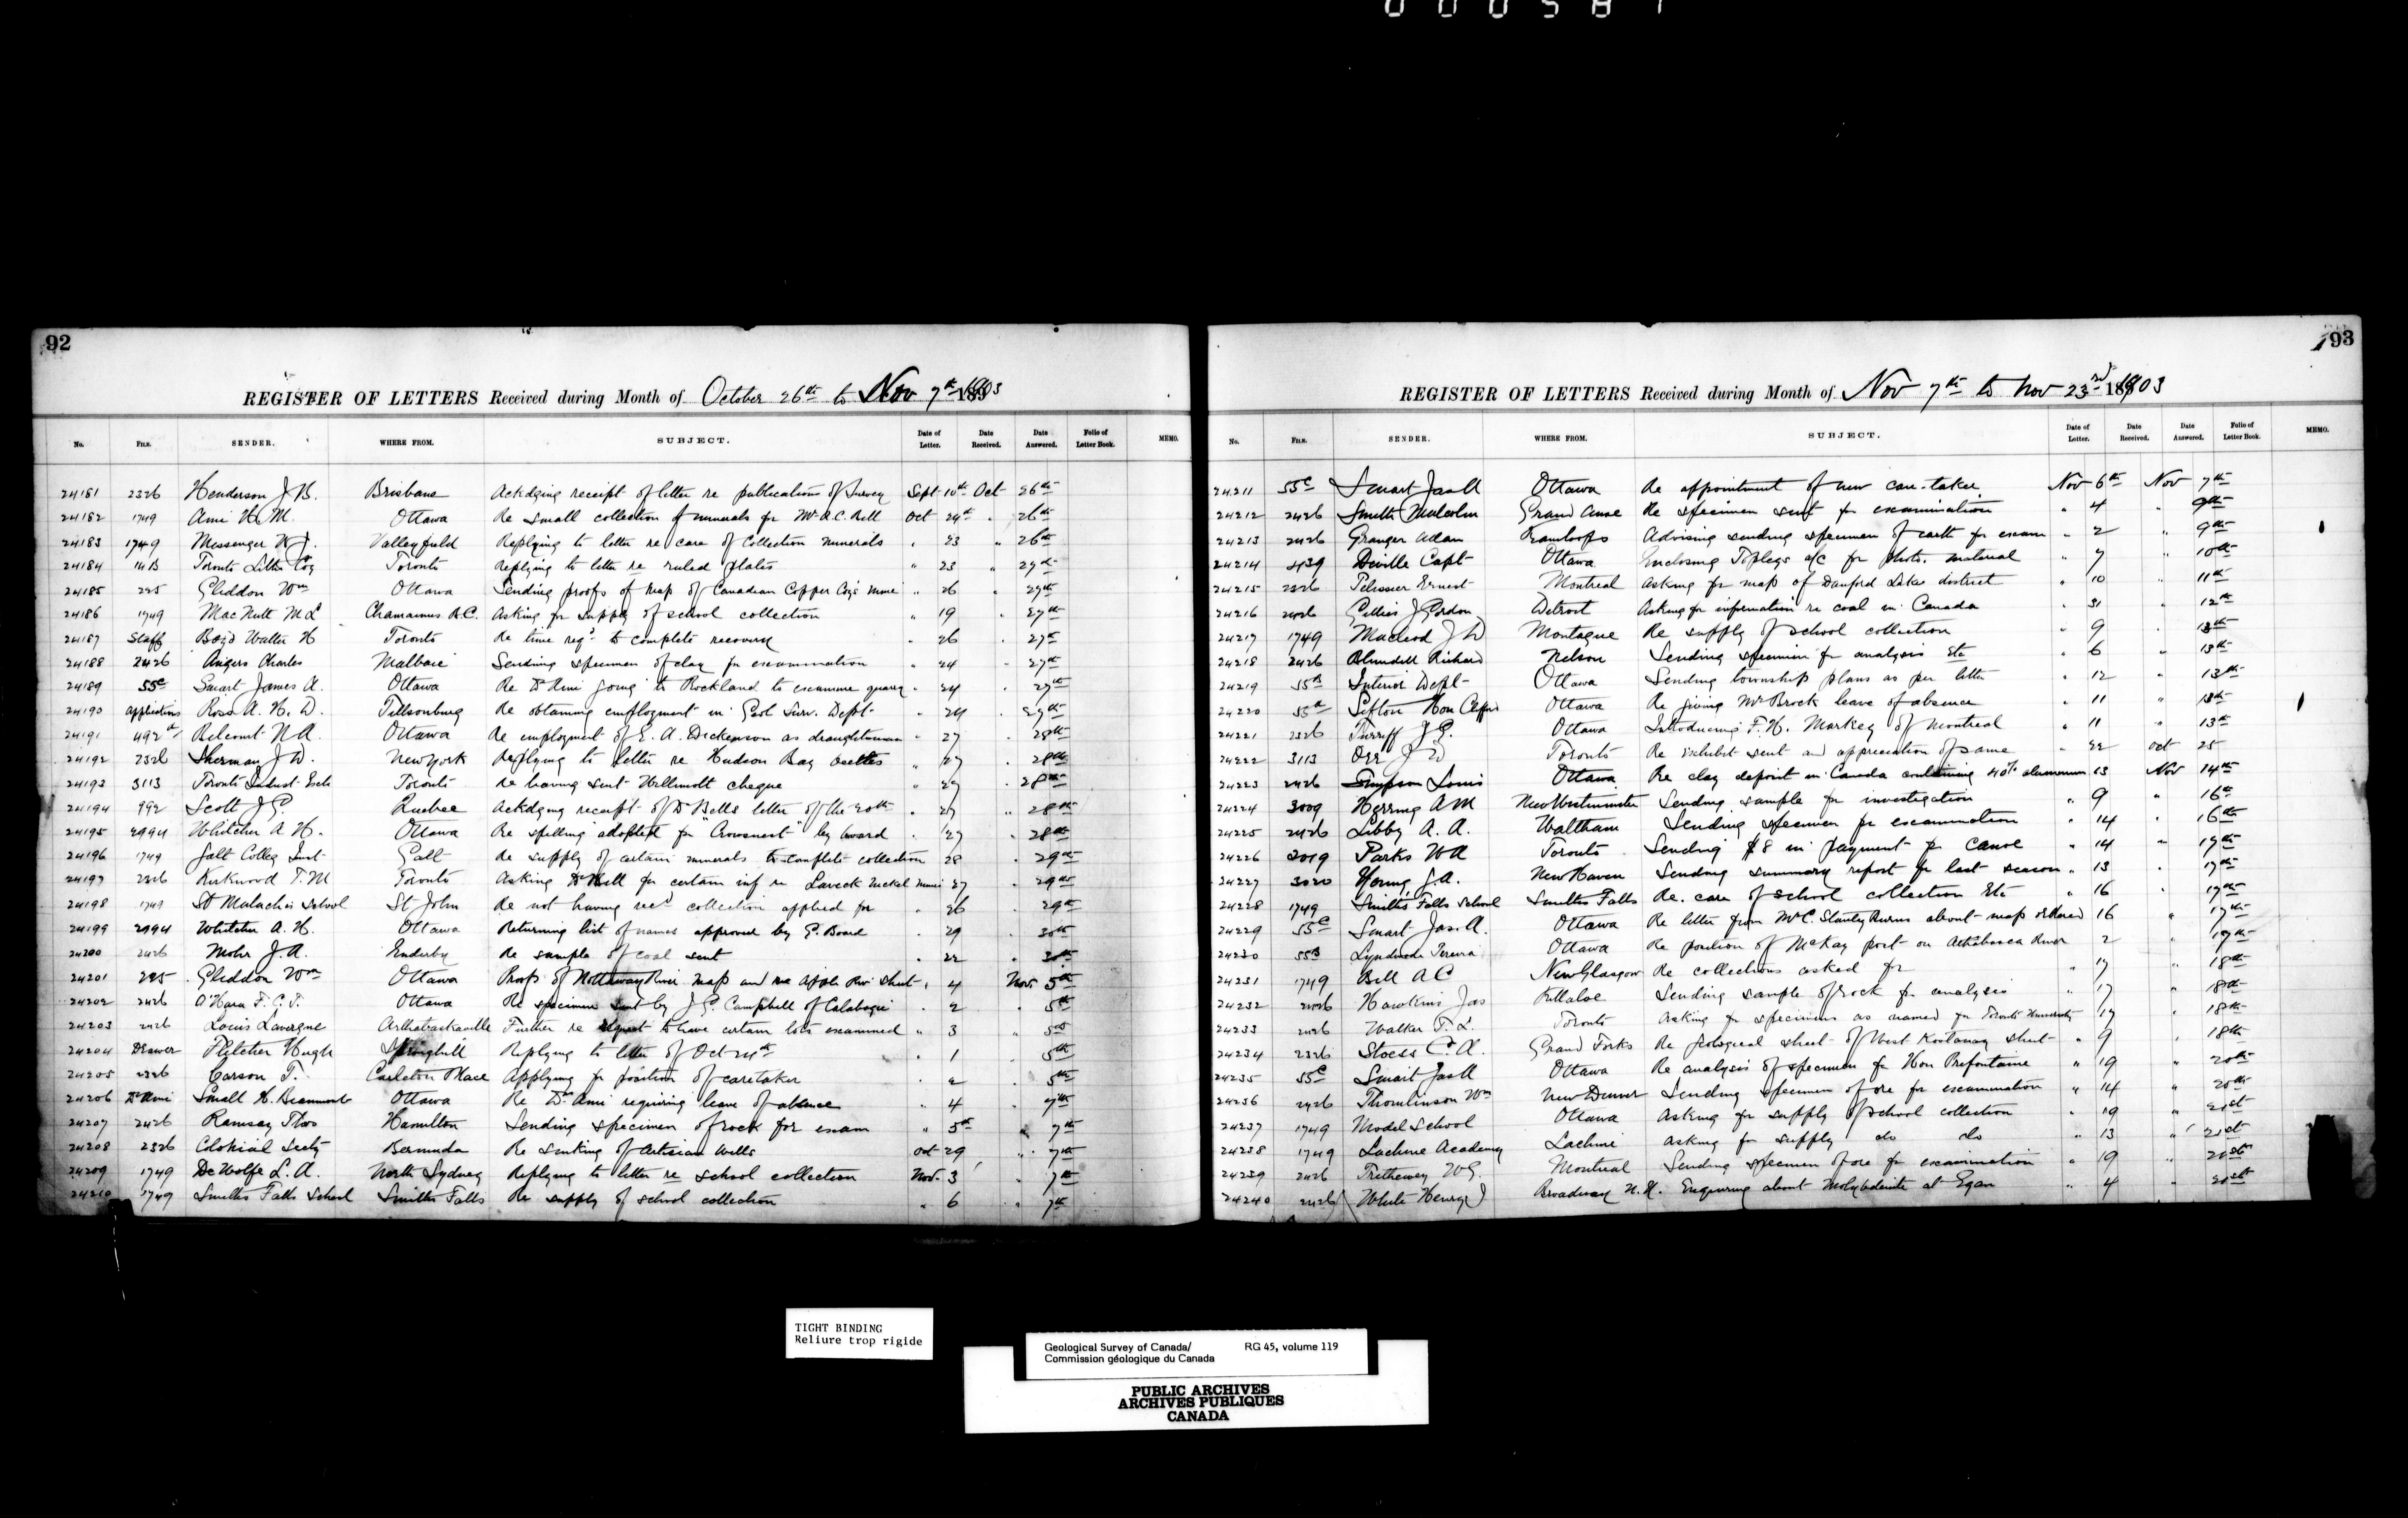 92
REGISTER OF LETTERS Received during Month of October 26th to Nov 7th 1903
No. FILE. SENDER. WHERE FROM. SUBJECT. Date of Letter. Date Received. Date Answered. Folio of Letter Book. MEMO.
24181 2326 Henderson J.B. Brisbane Ackdging receipt of letter re publications of Survey Sept 10th Oct 26th
24182 1749 Ami H. M. Ottawa Re small collection of minerals for Mr R.C. Bell Oct 24th " 26th
24183 1749 Messenger W J. Valleyfield Replying to letter re care of Collection minerals " 23 " 26th
24184 14B Toronto Litho Coy Toronto Replying to letter re ruled plates " 23 " 27th
24185 225 Gliddon Wm Ottawa Sending proofs of map of Canadian Copper Coy's mine " 26 " 27th
24186 1749 MacNutt M L Chamainus B.C. Asking for supply of school collection " 19 " 27th
24187 Staff Boyd Walter H Toronto Re time reqd to complete recovery " 26 " 27th
24188 2426 Angers Charles Malbaie Sending specimen of clay for examination " 24 " 27th
24189 55c Smart James A. Ottawa Re Dr Ami going to Rockland to examine quarry " 24 " 27th
24190 applications Ross A. H. D. Tillsonburg Re obtaining employment in Geol Surv. Dept " 24 " 27th
24191 492 Belcourt N A. Ottawa Re employment of E. A. Dickenson as draughtsman " 27 " 28th
24192 2326 Sherman J D. New York Replying to letter re Hudson Bay beetles " 27 " 28th
24193 3113 Toronto Indust Exh Toronto Re having sent Willimott cheque " 27 " 28th
24194 792 Scott J G. Quebec Ackdging receipt of Dr Bells letter of the 20th " 27 " 28th
24195 2994 Whitcher A H. Ottawa Re spelling adopted for "Crowsnest" by board " 27 " 28th
24196 1749 Galt Colleg Inst Galt Re supply of certain minerals to complete collection 28 " 29th
24197 2326 Kirkwood T. M Toronto Asking Dr Bell for certain inf re Levack Nickel mines 27 29th
24198 1749 St Malachis School St John Re not having recd collection applied for " 26 " 29th
24199 2994 Whitcher A. H. Ottawa Returning list of names approved by G. Board " 29 " 30th
24200 2426 Mohr J. A. Enderby Re sample of coal sent " 22 " 30th
24201 225 Gliddon Wm Ottawa Proofs of Nottaway River map and sheet " 4 Nov 5th
24202 2426 O'Hara F. C. T. Ottawa Re specimen sent by J G. Campbell of Calabogie " 2 " 5th
24203 2426 Louis Lavergne Arthabaskaville Further re request to have certain lots examined " 3 " 5th
24204 Drawer Fletcher Hugh Springhill Replying to letter of Oct 24th " 1 " 5th
24205 2326 Carson T. Carleton Place Applying for position of caretaker " 2 " 5th
24206 Dr Ami Small H. Beaumont Ottawa Re Dr Ami requiring leave of absence " 4 " 7th
24207 2426 Ramsay Thos Hamilton Sending specimen of rock for exam " 5th " 7th
24208 2326 Colonial Secty Bermuda Re sinking of Artesian wells Oct 29 " 7th
24209 1749 DeWolfe L. A. North Sydney Replying to letter re school collection Nov. 3 " 7th
24210 1749 Smiths Falls School Smiths Falls Re supply of school collection " 6 " 7th
93
REGISTER OF LETTERS Received during Month of Nov 7th to Nov 23rd 1903
No. FILE. SENDER. WHERE FROM. SUBJECT. Date of Letter. Date Received. Date Answered. Folio of Letter Book. MEMO.
24211 55c Smart Jas A Ottawa Re appointment of new care-taker Nov 6th Nov 7th
24212 2426 Smith Malcolm Grand Anse Re specimen sent for examination " 4 " 9th
24213 2426 Granger Adam Kamloops Advising sending specimen of earth for exam " 2 " 9th
24214 439 Deville Capt Ottawa Enclosing Topleys a/c for photo. material " 7 " 10th
24215 2326 Pelissier Ernest Montreal Asking for map of Danford Lake district " 10 " 11th
24216 2426 Gillies J Gordon Detroit Asking for information re coal in Canada " 31 " 12th
24217 1749 Macleod J D Montague Re supply of school collection " 9 " 13th
24218 2426 Blundell Richard Nelson Sending specimen for analysis Etc " 6 " 13th
24219 55B Interior Dept Ottawa Sending township plans as per letter " 12 " 13th
24220 55 Sifton Hon Clifford Ottawa Re giving Mr Brock leave of absence " 11 " 13th
24221 2326 Turriff J G. Ottawa Introducing F. H. Markey of Montreal " 11 " 13th
24222 3113 Orr J D Toronto Re exhibit sent and appreciation of same " 22 Oct 25
24223 2426 Simpson Louis Ottawa Re clay deposit in Canada containing 40% aluminum 13 Nov 14th
24224 3009 Herring A M New Westminster Sending sample for investigation " 9 " 16th
24225 2426 Libby A. A. Waltham Sending specimen for examination " 14 " 16th
24226 3019 Parks W A Toronto Sending $8 in payment for canoe " 14 " 17th
24227 3020 Young G. A. New Haven Sending summary report for last season " 13 " 17th
24228 1749 Smiths Falls School Smiths Falls Re. care of school collection Etc " 16 " 17th
24229 55c Smart Jas. A. Ottawa Re letter from Mr C. Stanley Burns about map ordered 16 " 17th
24230 55B Lyndwode Pereira Ottawa Re position of McKay port on Athabasca River 2 " 17th
24231 1749 Bell A C New Glasgow Re collections asked for " 17 " 18th
24232 2426 Hawkins Jas Killaloe Sending sample of rock for analysis " 17 " 18th
24233 2426 Walker T. L. Toronto Asking for specimens as named for Toronto University " 17 " 18th
24234 2326 Stoess C. A. Grand Forks Re geological sheet of West Kootanay sheet " 9 " 18th
24235 55c Smart Jas A Ottawa Re analysis of specimen for Hon Prefontaine " 19 " 20th
24236 2426 Thomlinson Wm New Denver Sending specimen of ore for examination " 14 " 20th
24237 1749 Model School Ottawa Asking for supply of school collection " 19 " 21st
24238 1749 Lachine Academy Lachine Asking for supply do do " 13 " 21st
24239 2426 Tretheway W G. Montreal Sending specimen of ore for examination " 19 " 21st
24240 2426 White Henry J Broadway N. H. Enquiring about Molybdenite at Egan " 4 " 21st
TIGHT BINDING
Reliure trop rigide
Geological Survey of Canada/ RG 45, volume 119
Commission géologique du Canada
PUBLIC ARCHIVES
ARCHIVES PUBLIQUES
CANADA